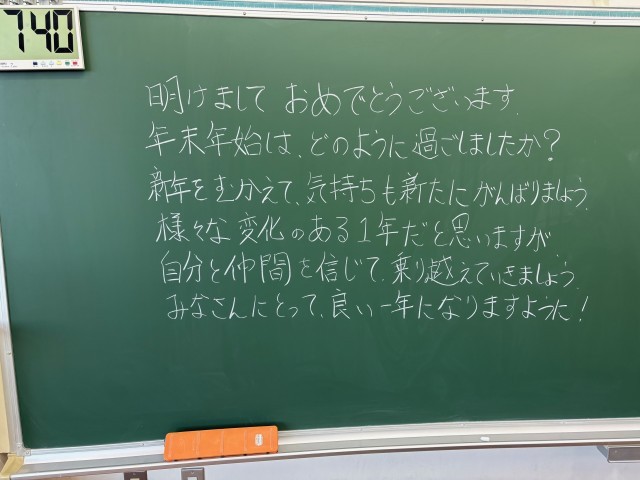 740
明けまして おめでとうございます.
年末年始は、どのように過ごしましたか?
新年をむかえて、気持ちも新たにがんばりましょう.
様々な変化のある1年だと思いますが、
自分と仲間を信じて、乗り越えていきましょう.
みなさんにとって、良い一年になりますように!